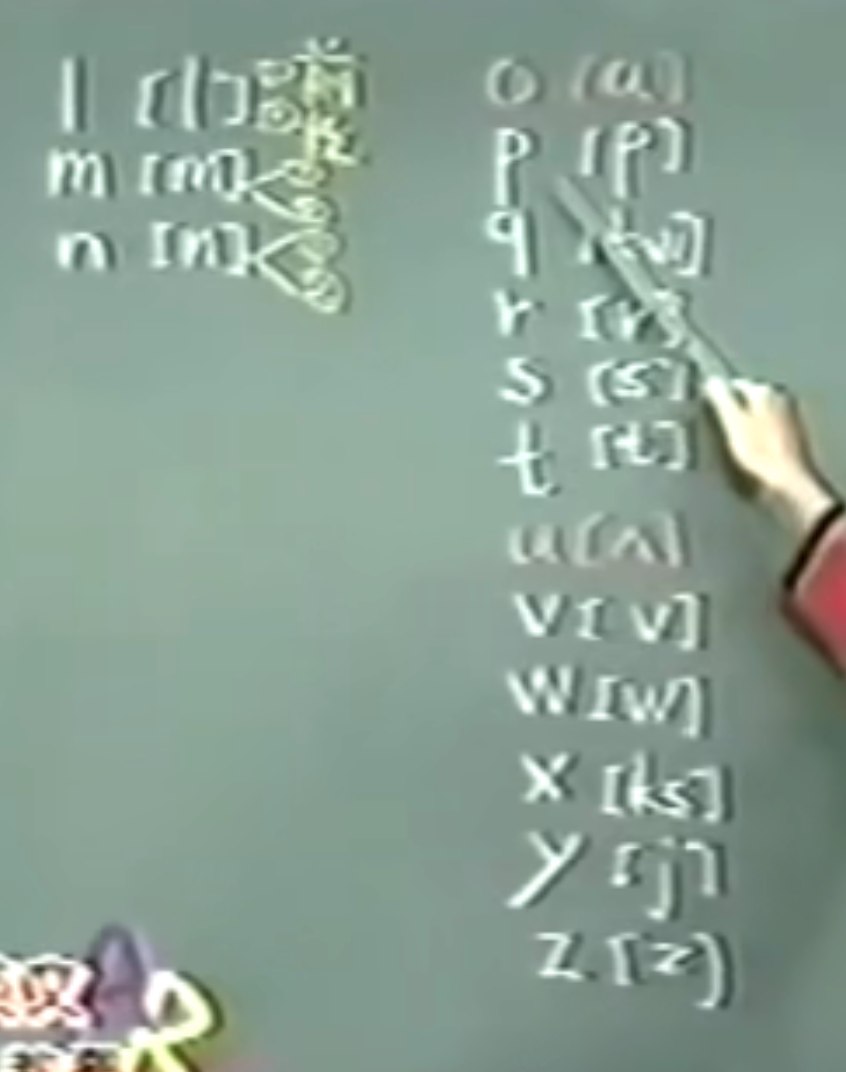 l [l]
m [m]
n [n]
o [a]
p [p]
q [kw]
r [r]
s [s]
t [t]
u [ʌ]
v [v]
w [w]
x [ks]
y [j]
z [z]